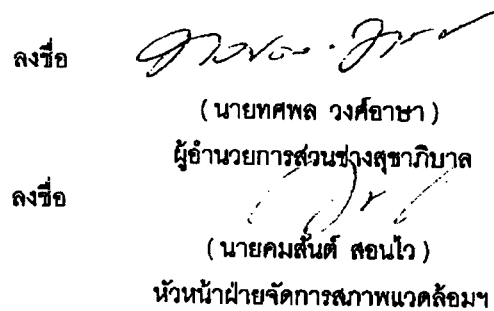 ลงชื่อ
(นายทศพล วงศ์อาษา)
ผู้อำนวยการส่วนช่างสุขาภิบาล
ลงชื่อ
(นายคมสันต์ สอนไว)
หัวหน้าฝ่ายจัดการสภาพแวดล้อมฯ